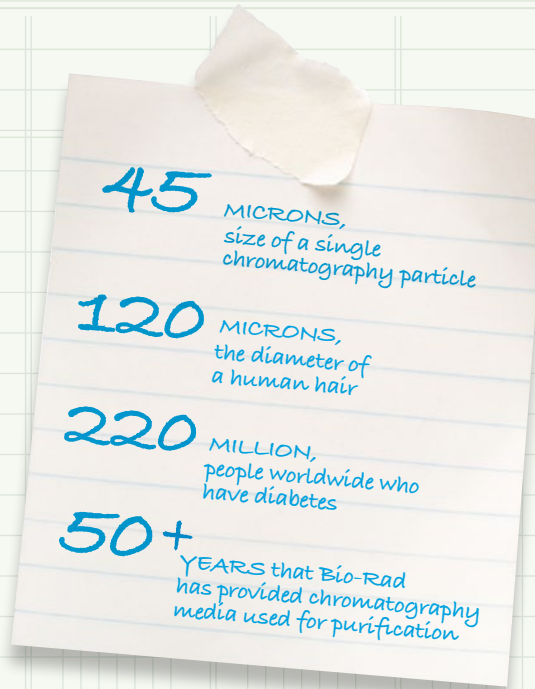 45 MICRONS,
size of a single
chromatography particle
120 MICRONS,
the diameter of
a human hair
220 MILLION,
people worldwide who
have diabetes
50+
YEARS that Bio-Rad
has provided chromatography
media used for purification